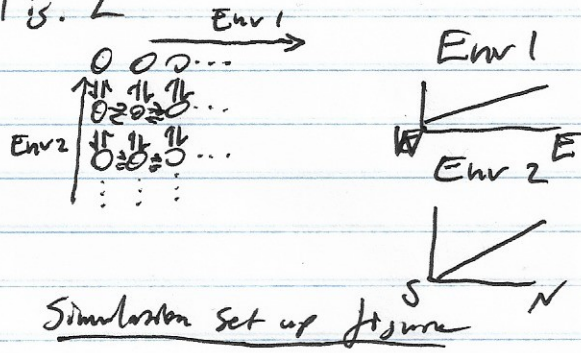 Fig. 2
Env 1
Env 2
Env 1
W E
Env 2
S N
Simulation set up figure